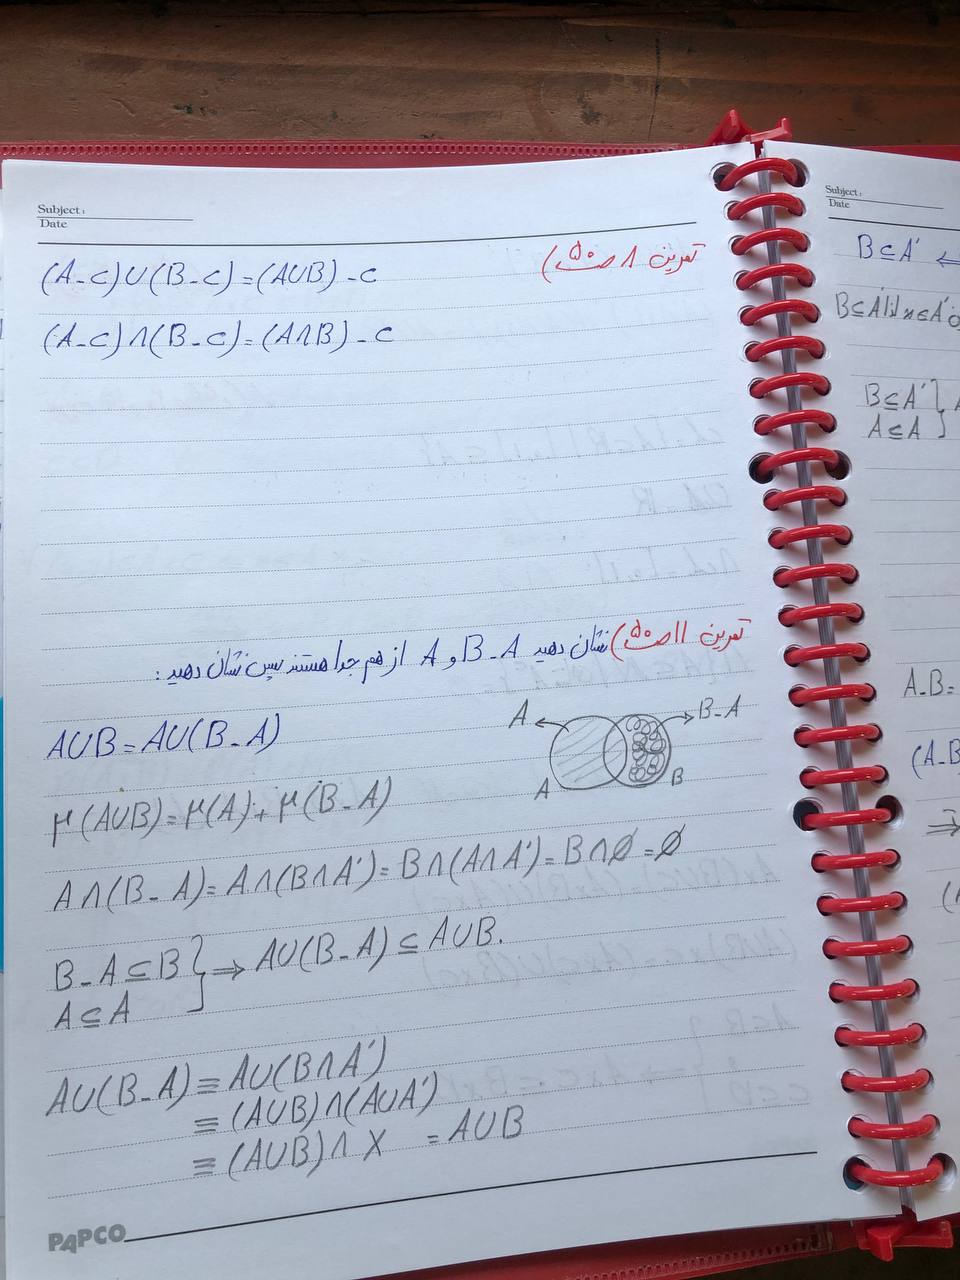 Subject:
Date
تمرین ۸ ص ۵۰)
(A-C)∪(B-C)=(A∪B)-C
(A-C)∩(B-C)=(A∩B)-C
تمرین ۱۱ ص ۵۰) نشان دهید B-A و A از هم جدا هستند سپس نشان دهید:
A∪B=A∪(B-A)
A
B-A
A
B
μ(A∪B)=μ(A)+μ(B-A)
A∩(B-A)=A∩(B∩A')=B∩(A∩A')=B∩∅=∅
B-A⊆B
A⊆A
} ⇒ A∪(B-A)⊆A∪B.
A∪(B-A)≡A∪(B∩A')
≡(A∪B)∩(A∪A')
≡(A∪B)∩X =A∪B
PAPCO
Subject:
Date
B⊆A' ⇐
B⊆A'
A⊆A
}
A-B=
(A-B
⇒